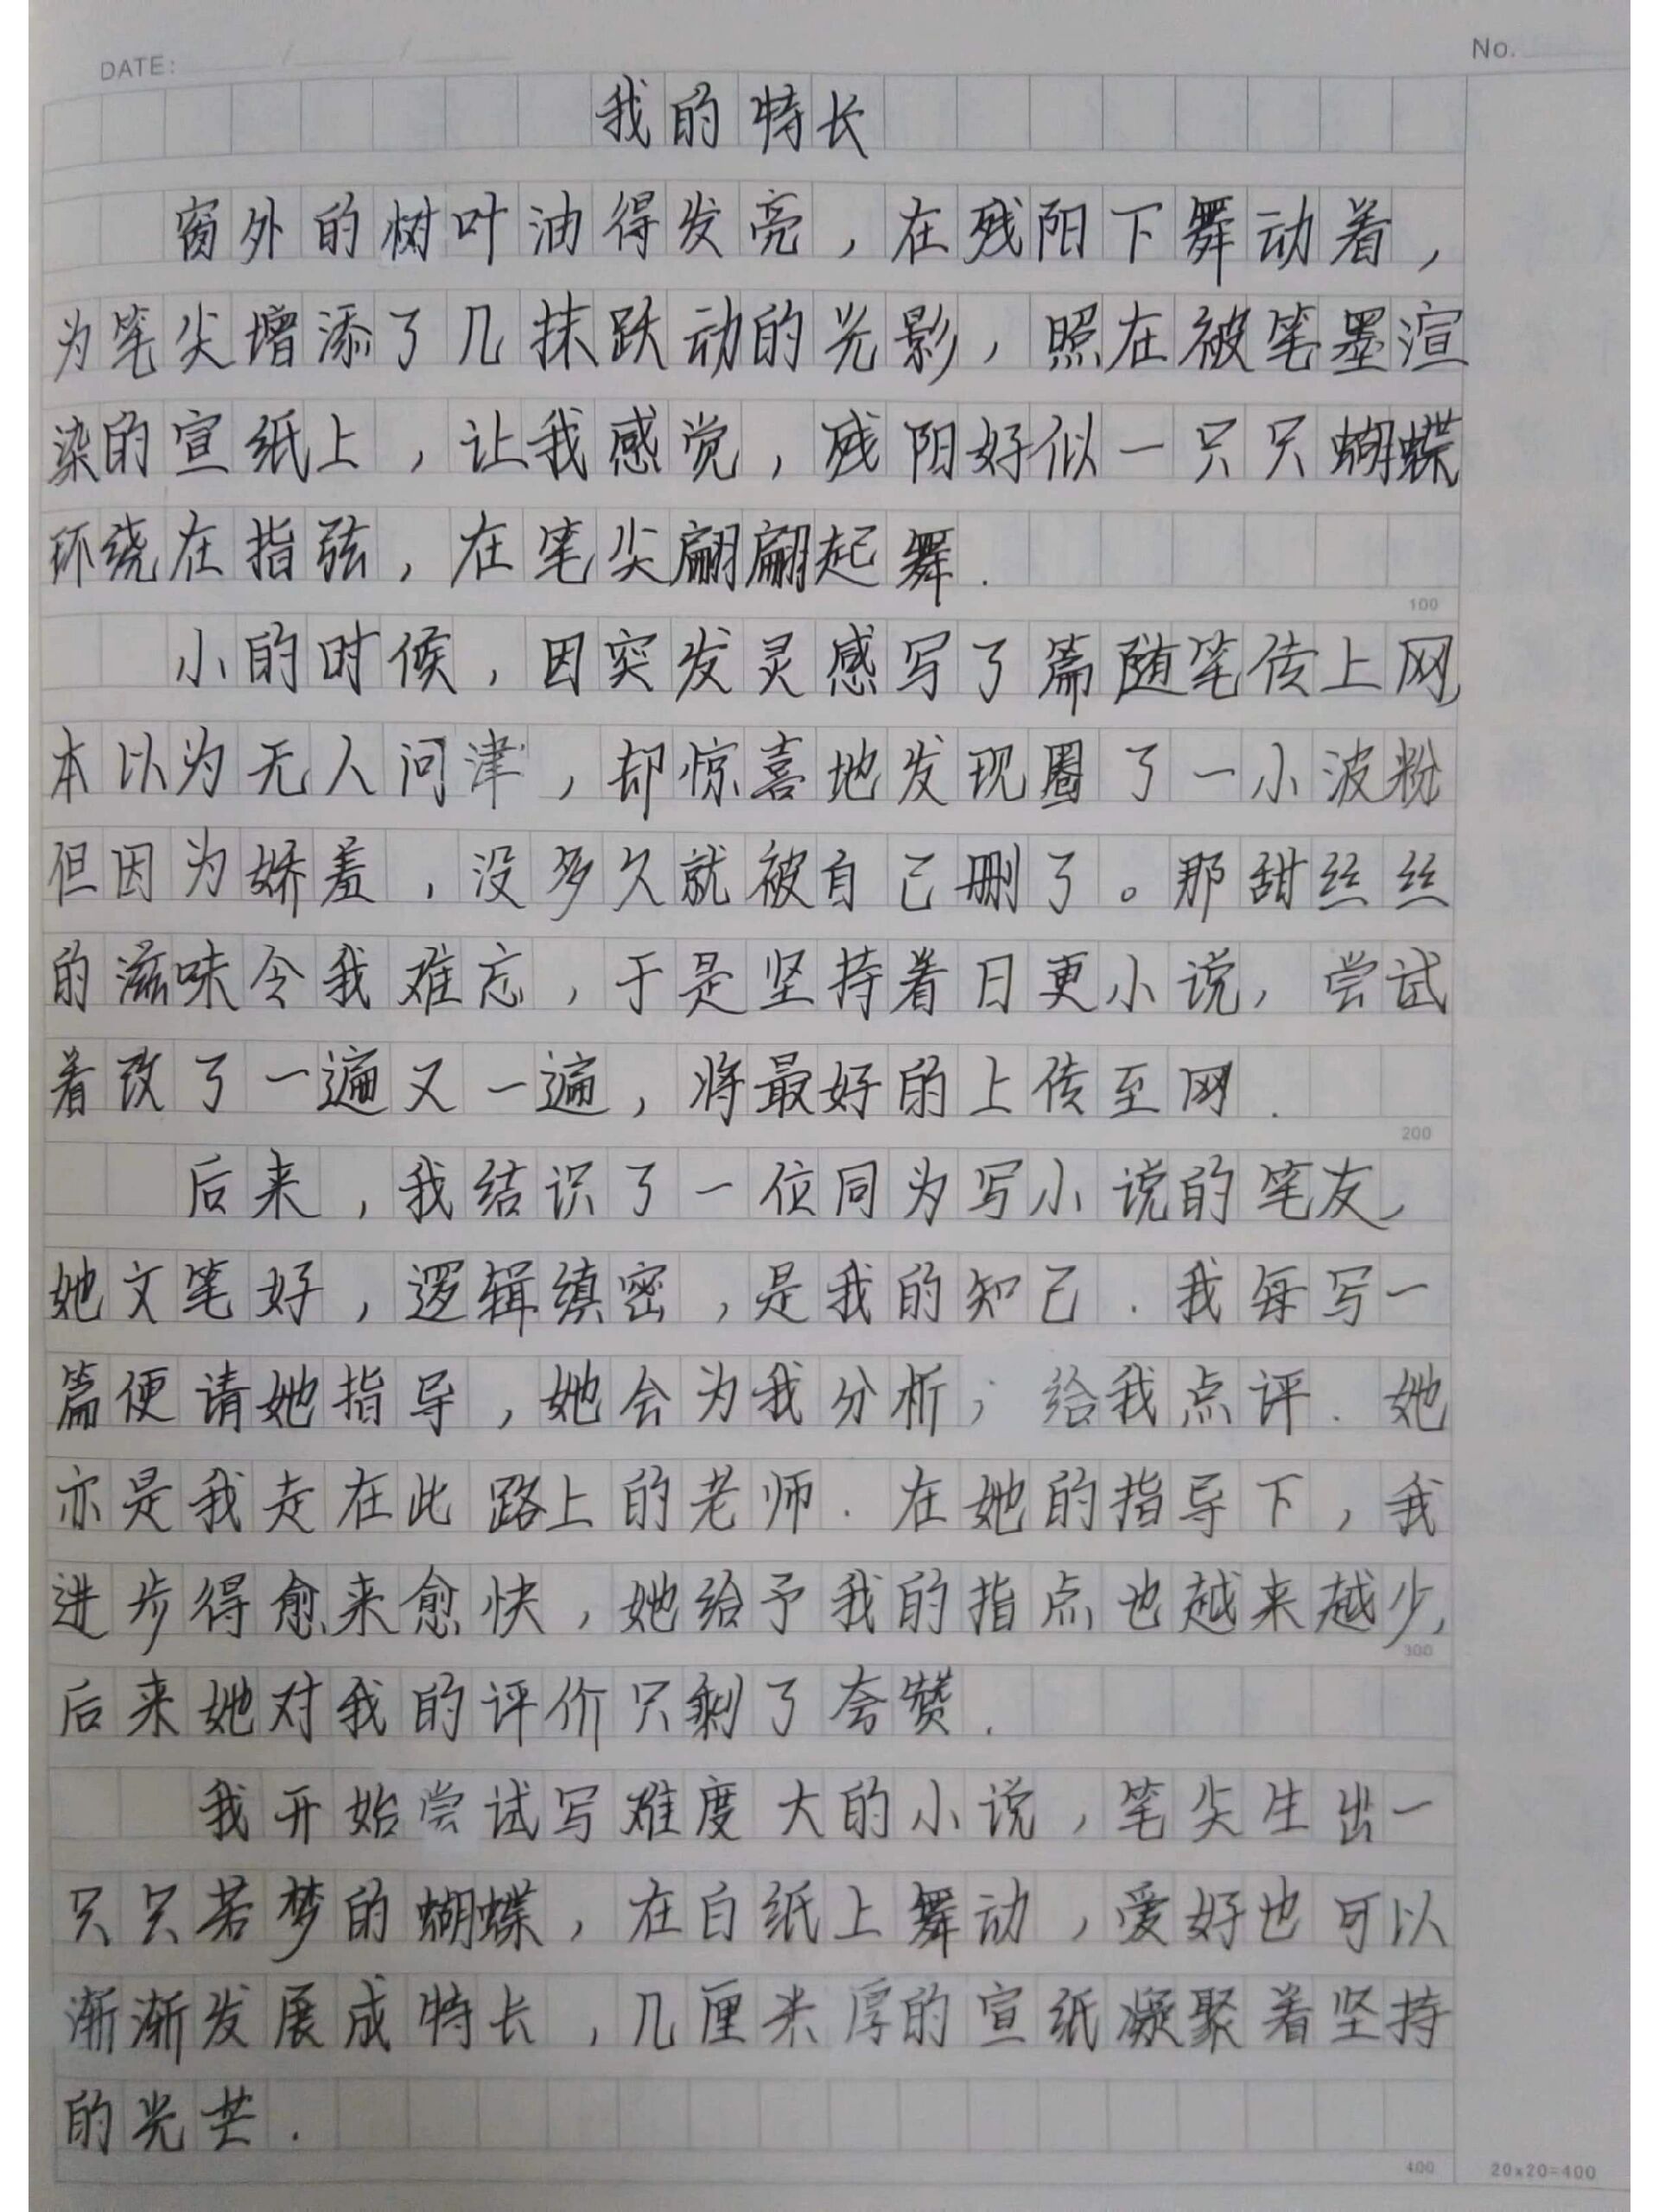 DATE: / /
No.
我的特长
窗外的树叶油得发亮，在残阳下舞动着，
为笔尖增添了几抹跃动的光影，照在被笔墨渲
染的宣纸上，让我感觉，残阳好似一只只蝴蝶
环绕在指弦，在笔尖翩翩起舞.
100
小的时候，因突发灵感写了篇随笔传上网，
本以为无人问津，却惊喜地发现圈了一小波粉
但因为娇羞，没多久就被自己删了。那甜丝丝
的滋味令我难忘，于是坚持着日更小说，尝试
着改了一遍又一遍，将最好的上传至网.
200
后来，我结识了一位同为写小说的笔友，
她文笔好，逻辑缜密，是我的知己.我每写一
篇便请她指导，她会为我分析；给我点评.她
亦是我走在此路上的老师.在她的指导下，我
进步得愈来愈快，她给予我的指点也越来越少，
300
后来她对我的评价只剩了夸赞.
我开始尝试写难度大的小说，笔尖生出一
只只若梦的蝴蝶，在白纸上舞动，爱好也可以
渐渐发展成特长，几厘米厚的宣纸凝聚着坚持
的光芒.
400
20×20=400